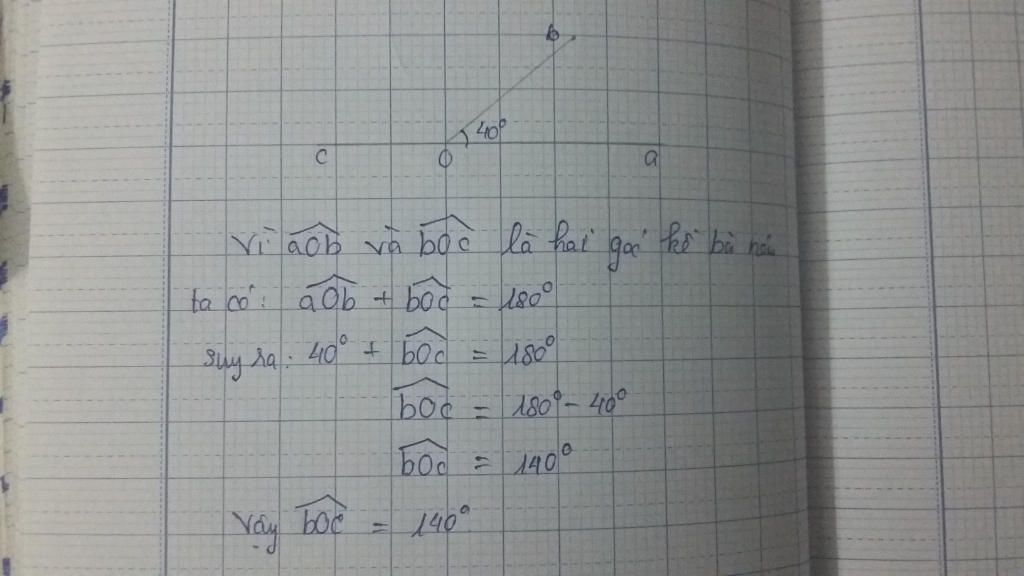 b
40°
c O a
Vì aOb và bOc là hai góc kề bù nên
ta có: aOb + bOc = 180°
suy ra: 40° + bOc = 180°
bOc = 180° - 40°
bOc = 140°
Vậy bOc = 140°